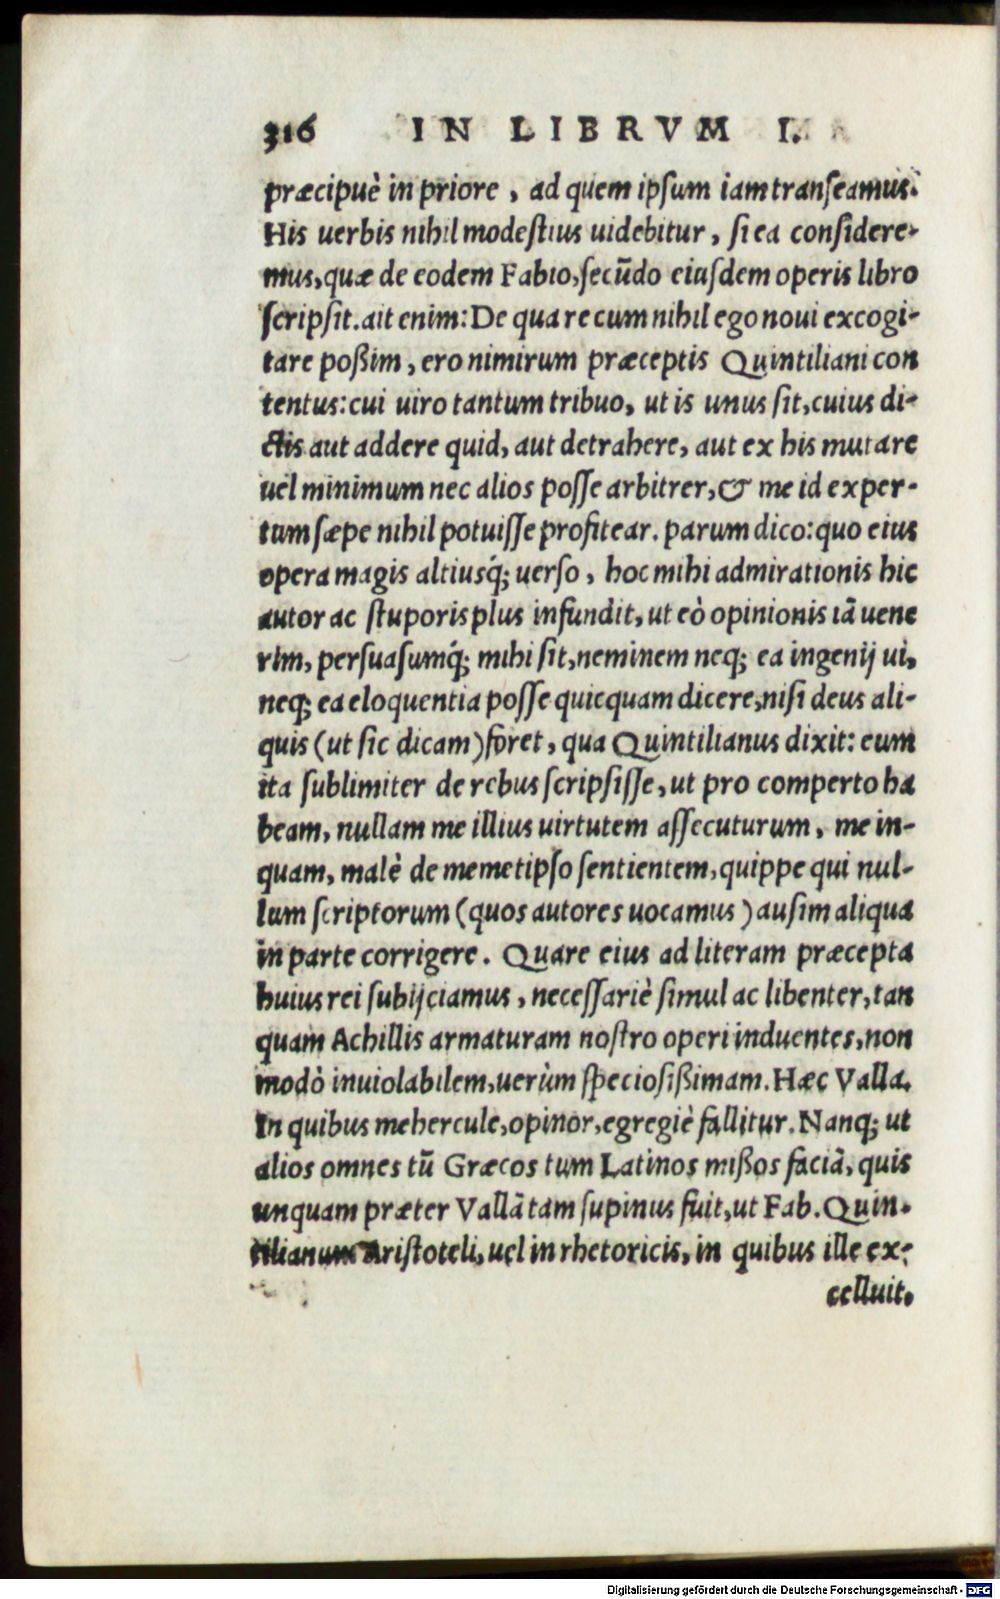 316 IN LIBRVM I.
præcipuè in priore, ad quem ipsum iam transeamus.
His uerbis nihil modestius uidebitur, si ea considere-
mus, quæ de eodem Fabio, secũdo eiusdem operis libro
scripsit. ait enim: De qua re cum nihil ego noui excogi-
tare poßim, ero nimirum præceptis Quintiliani con
tentus: cui uiro tantum tribuo, ut is unus sit, cuius di-
ctis aut addere quid, aut detrahere, aut ex his mutare
uel minimum nec alios posse arbitrer, & me id exper-
tum sæpe nihil potuisse profitear. parum dico: quo eius
opera magis altiusq́; uerso, hoc mihi admirationis hic
autor ac stuporis plus infundit, ut eò opinionis iã uene
rim, persuasumq́; mihi sit, neminem neq; ea ingenij ui,
neq; ea eloquentia posse quicquam dicere, nisi deus ali-
quis (ut sic dicam) foret, qua Quintilianus dixit: eum
ita sublimiter de rebus scripsisse, ut pro comperto ha
beam, nullam me illius uirtutem assecuturum, me in-
quam, malè de memetipso sentientem, quippe qui nul-
lum scriptorum (quos autores uocamus) ausim aliqua
in parte corrigere. Quare eius ad literam præcepta
huius rei subijciamus, necessariè simul ac libenter, tan
quam Achillis armaturam nostro operi induentes, non
modò inuiolabilem, uerùm speciosißimam. Hæc Valla.
In quibus mehercule, opinor, egregiè fallitur. Nanq; ut
alios omnes tũ Græcos tum Latinos mißos faciã, quis
unquam præter Vallã tam supinus fuit, ut Fab. Quin-
tilianum Aristoteli, uel in rhetoricis, in quibus ille ex-
celluit.
Digitalisierung gefördert durch die Deutsche Forschungsgemeinschaft - DFG